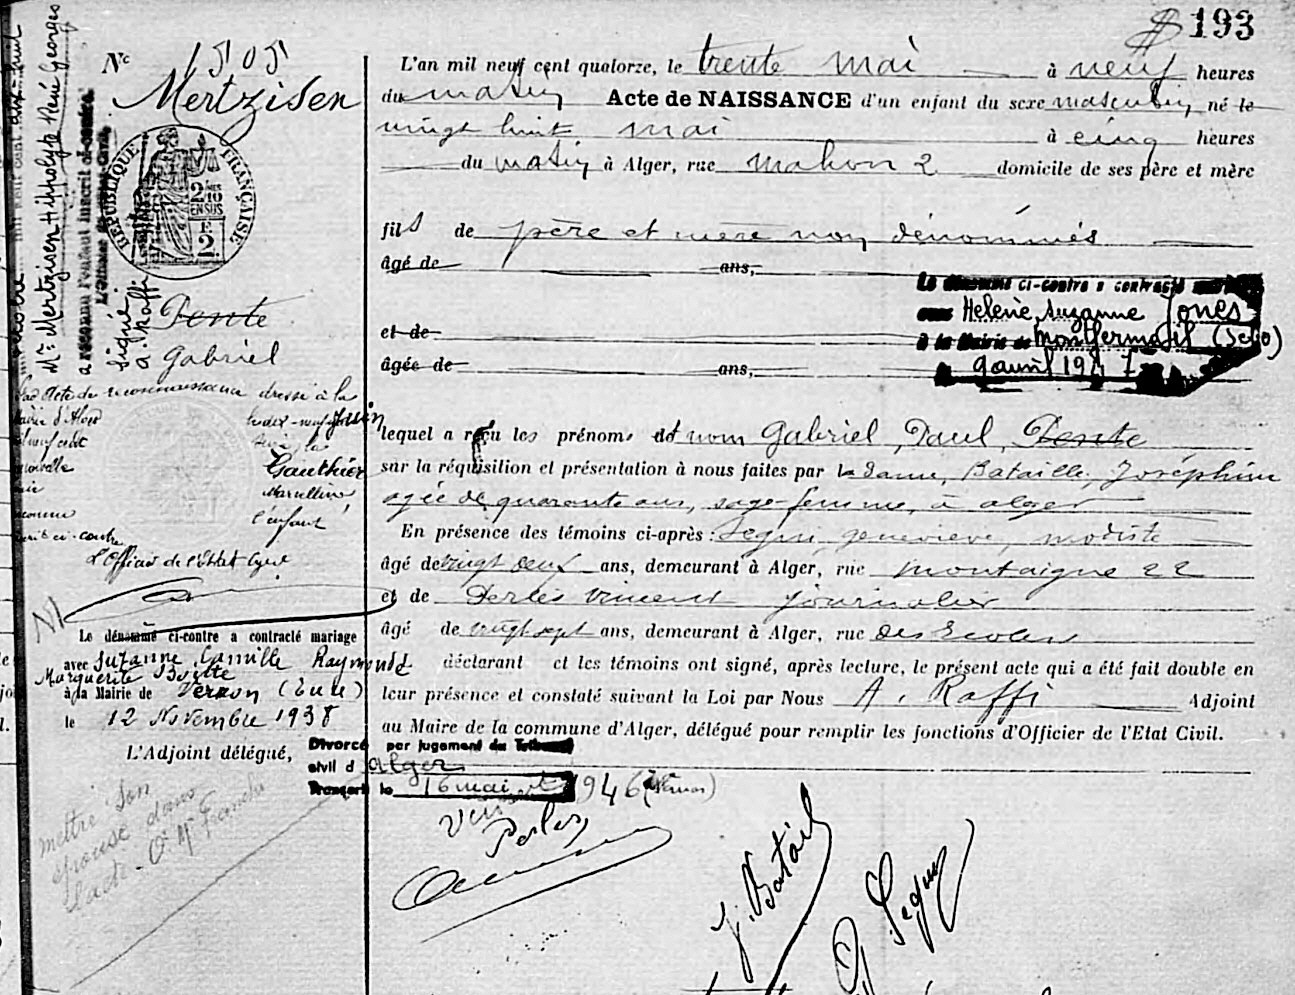 193
Nº 1505
Mertzisen
RÉPUBLIQUE FRANÇAISE
2/10
EN SUS
F
2.
Pente
Gabriel
Nº Mertzisen Hippolyte René Georges
a reconnu l'enfant inscrit ci-contre.
signé
A. Raffi
L'an mil neuf cent quatorze, le trente mai à neuf heures
du matin Acte de NAISSANCE d'un enfant du sexe masculin né le
vingt huit mai à cinq heures
du matin à Alger, rue Mahon 2 domicile de ses père et mère
fils de père et mère non dénommés
âgé de ans,
et de
âgée de ans,
Le dénommé ci-contre a contracté
avec Hélène Suzanne Jones
à la Mairie de Montfermeil
9 avril 1947
lequel a reçu les prénoms et nom Gabriel, Paul, Pente
sur la réquisition et présentation à nous faites par la dame, Bataille, Joséphine
agée de quarante ans, sage-femme, à alger
En présence des témoins ci-après : Segui, geneviève, modiste
âgé de vingt neuf ans, demeurant à Alger, rue Montaigne 22
et de Perles Vincent journalier
âgé de vingt sept ans, demeurant à Alger, rue des Ecoles
déclarant et les témoins ont signé, après lecture, le présent acte qui a été fait double en
leur présence et constaté suivant la Loi par Nous A. Raffi Adjoint
au Maire de la commune d'Alger, délégué pour remplir les fonctions d'Officier de l'Etat Civil.
acte de reconnaissance dressé à la
Gauthier
Marcelline
l'enfant
ci-contre
L'Officier de l'Etat Civil
Le dénommé ci-contre a contracté mariage
avec Suzanne Camille Raymonde
Marguerite Boitte
à la Mairie de Vernon (Eure)
le 12 Novembre 1938
L'Adjoint délégué,
Divorcé par jugement du Tribunal
civil d'Alger
le 16 mai 1946
mettre son
épouse dans
l'acte
Vincent
Perles
J. Bataille
Segui